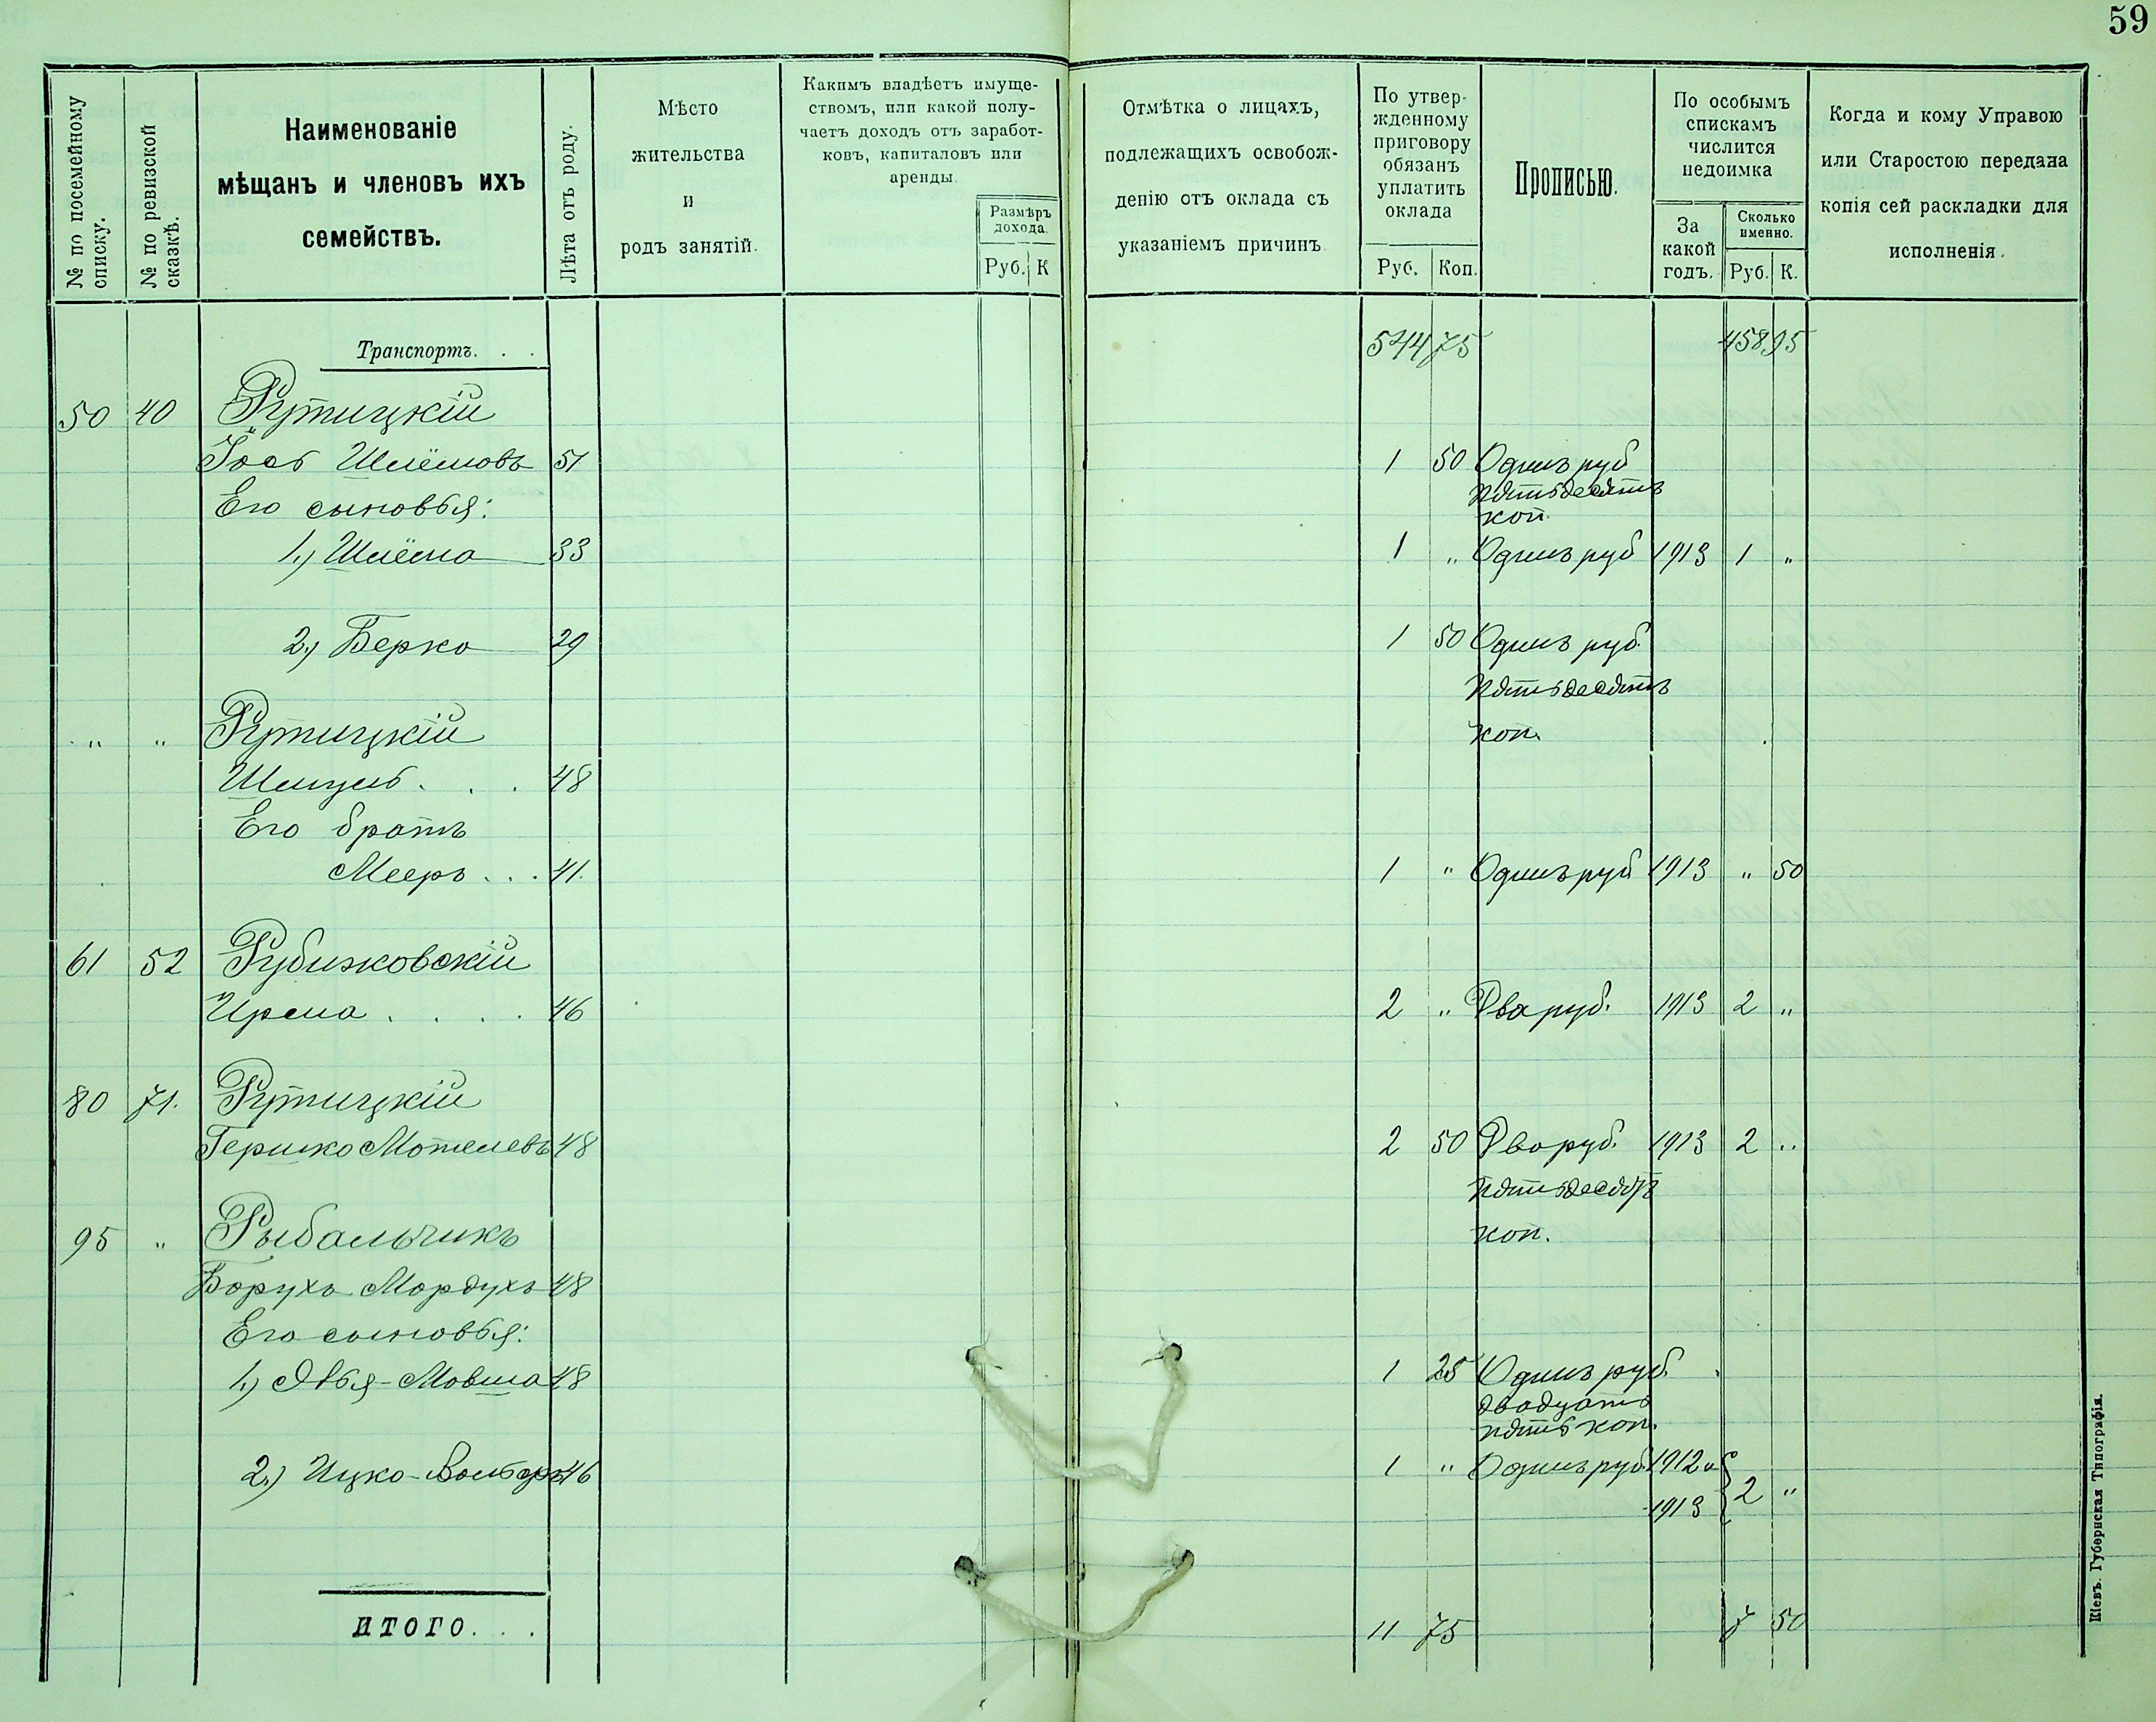 59
№ по посемейному списку.
№ по ревизской сказкѣ.
Наименованіе
мѣщанъ и членовъ ихъ
семействъ.
Лѣта отъ роду.
Мѣсто
жительства
и
родъ занятій.
Какимъ владѣетъ имуще-
ствомъ, или какой полу-
чаетъ доходъ отъ заработ-
ковъ, капиталовъ или
аренды.
Размѣръ
дохода.
Руб. К
Отмѣтка о лицахъ,
подлежащихъ освобож-
денію отъ оклада съ
указаніемъ причинъ
По утвер-
жденному
приговору
обязанъ
уплатить
оклада
Руб. Коп.
Прописью.
По особымъ
спискамъ
числится
недоимка
За
какой
годъ.
Сколько
именно.
Руб. К.
Когда и кому Управою
или Старостою передана
копія сей раскладки для
исполненія.
Транспортъ. . . 544 75 458 95
50 40 Рутицкій
Іось Шлёмовъ 51 1 50 Одинъ руб
пятьдесятъ
коп.
Его сыновья:
1,) Шлёма 33 1 " Одинъ руб 1913 1 "
2,) Берко 29 1 50 Одинъ руб.
пятьдесятъ
коп.
" " Рутицкій
Шмуль . . . 48
Его братъ
Мееръ . . . 41. 1 " Одинъ руб 1913 " 50
61 52 Рубижовскій
Ирма . . . . 46 2 " Два руб. 1913 2 "
80 71. Рутицкій
Гершко Мотелевъ 48 2 50 Два руб. 1913 2 "
пятьдесят
коп.
95 " Рыбальчикъ
Борухъ Мордухъ 48
Его сыновья:
1,) Овья-Мовша 28 1 25 Одинъ руб.
двадцать
пять коп.
2,) Ицко- 46 1 " Одинъ руб. 1912 и
1913 2 "
ИТОГО. . . 11 75 7 50
Кіевъ. Губернская Типографія.